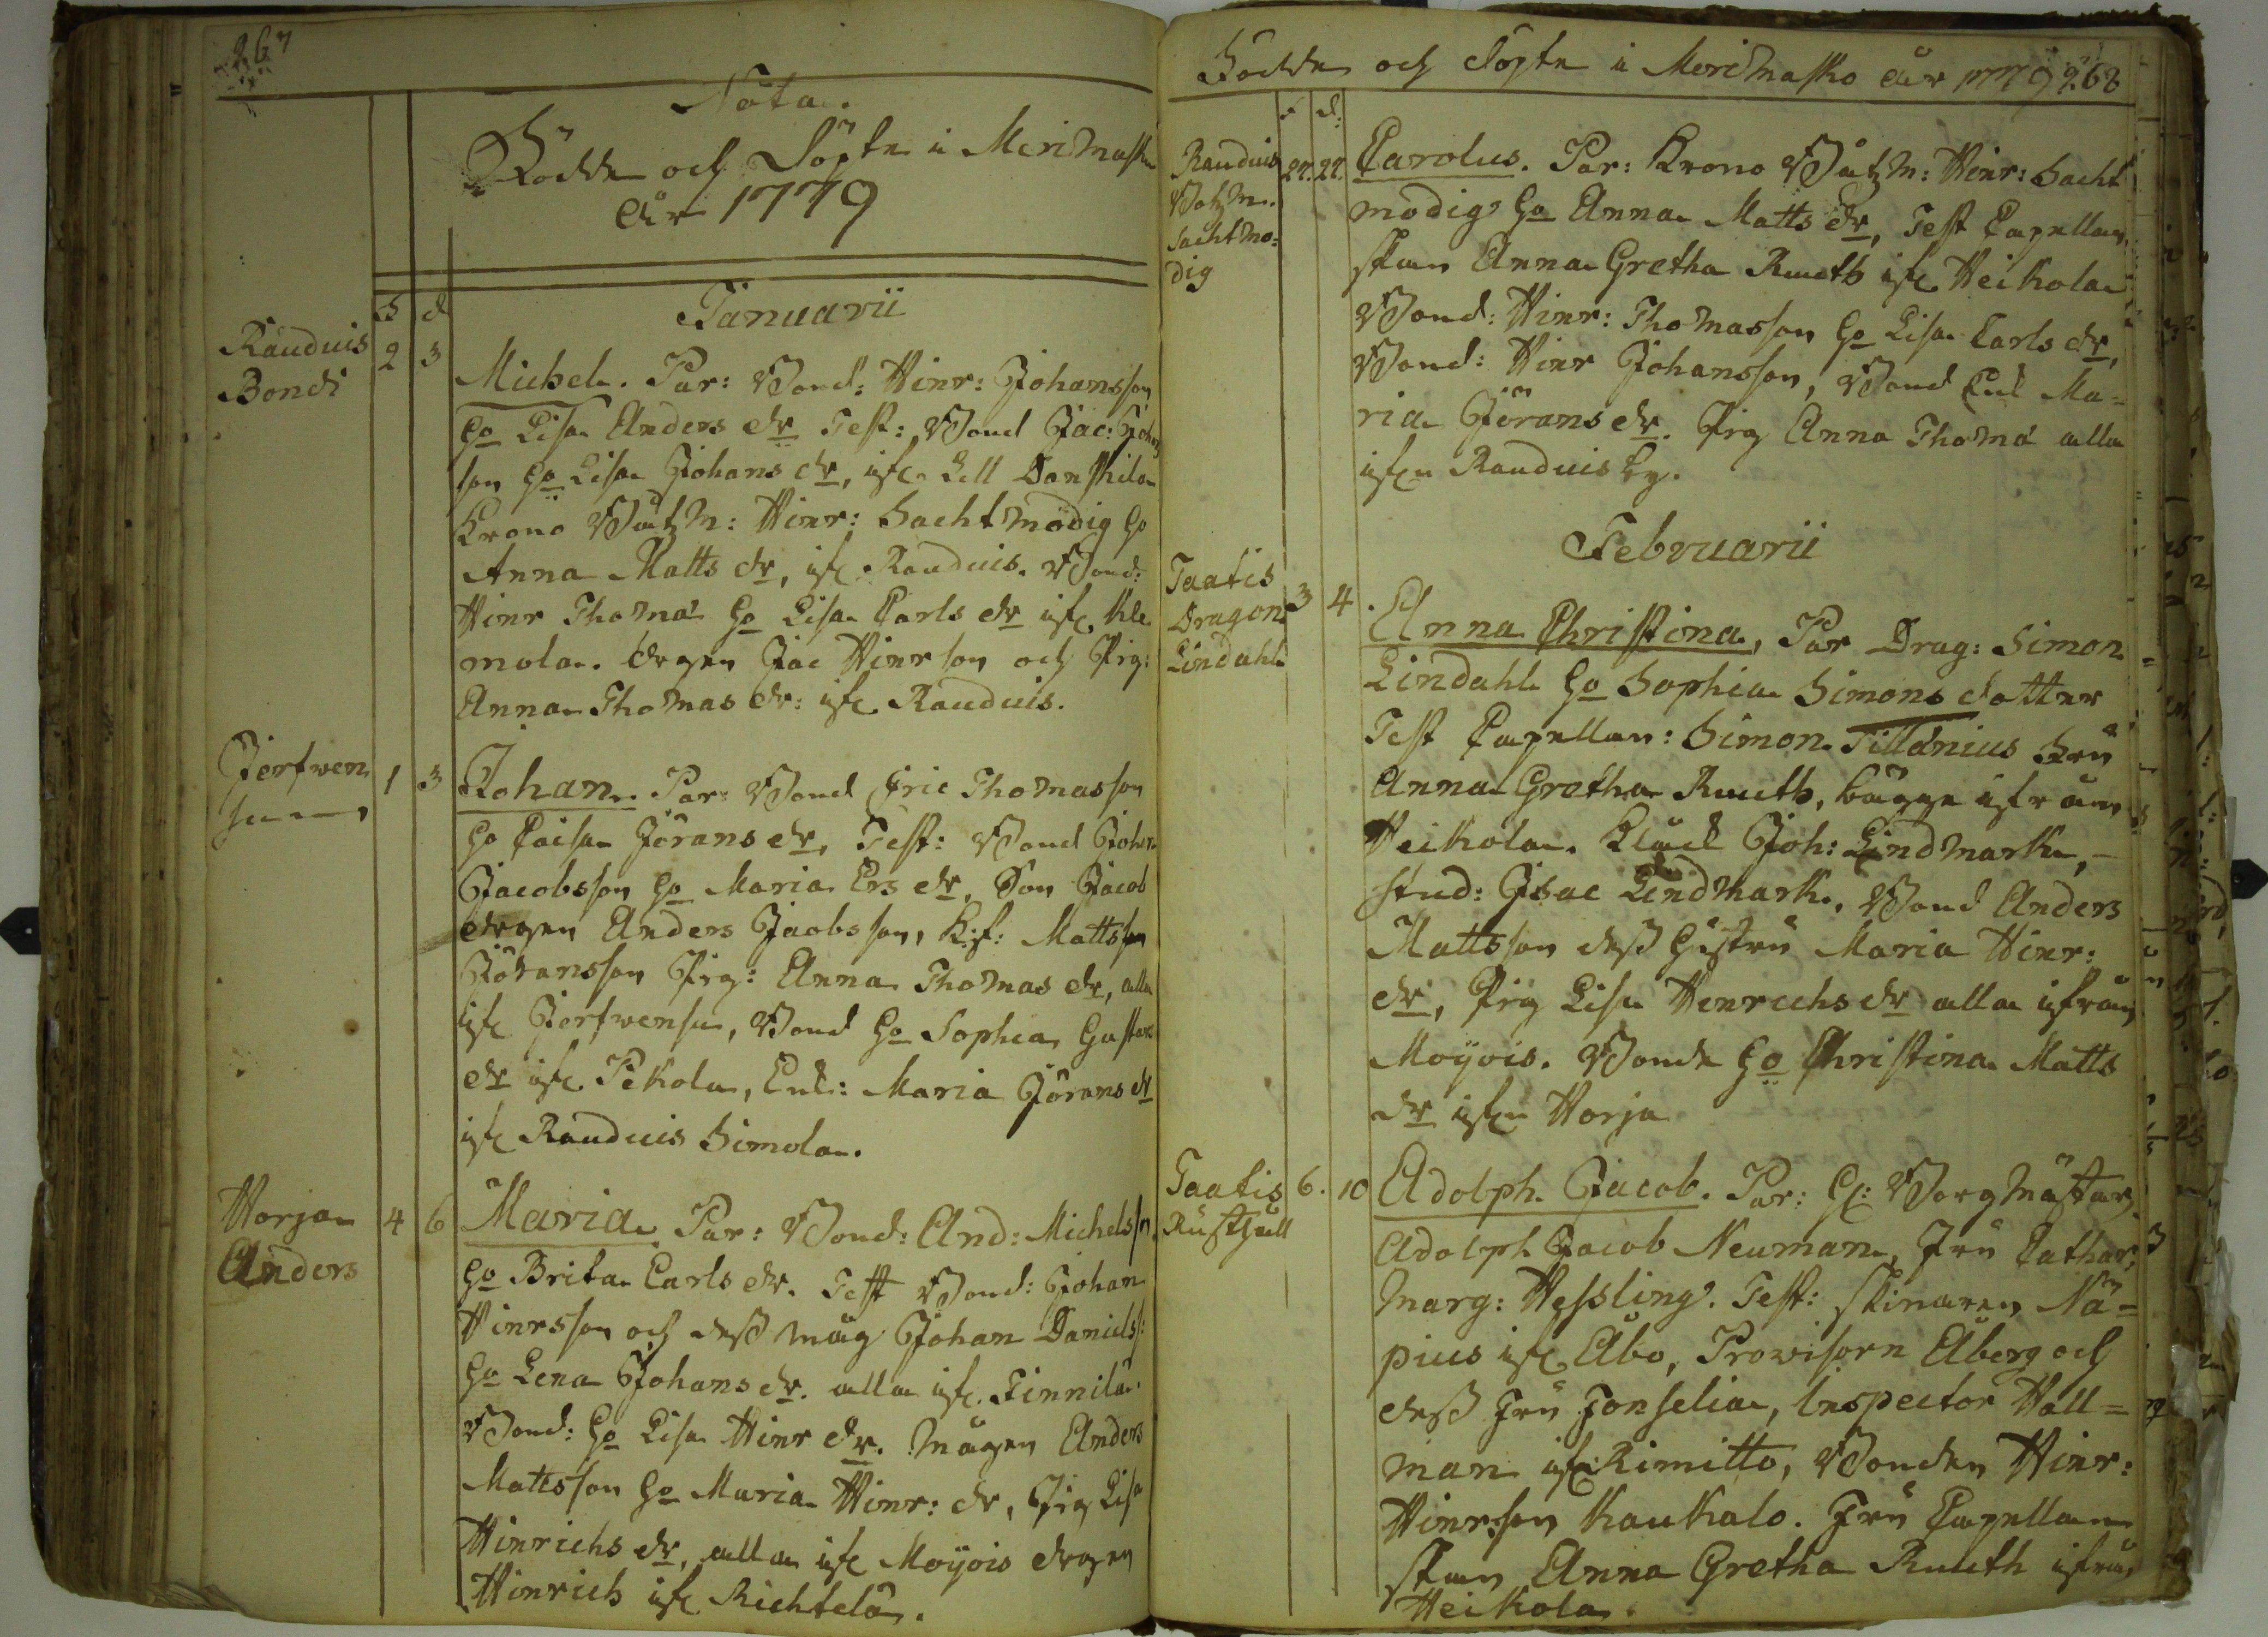 267
Nota.
Födde och Döpte i Merimasko
Åhr 1779
F d
Januarii
Rauduis 2 3
Bondi
Michel. Par: Bond: Hinr: Johansson
Ho Lisa Anders dr Test: Bond Jac: Johans
son Ho Lisa Johans dr, ifr. Lill
Krono Båtzm: Hinr: Sachtmodig Ho
Anna Matts dr, ifr Rauduis. Bond:
Hinr Thoma Ho Lisa Carls dr ifr Kle
mola. drgen Jac Hinrson och Pig:
Anna Thomas dr: ifr Rauduis.
Jerfwen 1 3
su
Johan. Par: Bond Eric Thomasson
Ho Caisa Jörans dr, Test: Bond Johan
Jacobsson Ho Maria Ers dr, Son Jacob
drgen Anders Jacobsson, Mattsson
Jöransson Pig: Anna Thomas dr, alla
ifr Jerfwensu, Bond Ho Sophia Gustavs
dr ifr Pekola, Enk: Maria Jörans dr
ifr Rauduis Simola.
Horja 4 6
Anders
Maria. Par: Bond: And: Michelsson
Ho Brita Carls dr. Test Bond: Johan
Hinrsson och dess måg Johan Daniels:
Ho Lena Johans dr. alla ifr. Finnilä
Bond: Ho Lisa Hinr dr. mågen Anders
Mattsson Ho Maria Hinr: dr, Pig Lisa
Hinrichs dr, alla ifr Moijois drgen
Hinrich ifr Richtelä.
Födde och Döpte i Merimasko åhr 1779 268
F d:
Rauduis 27. 27.
Botzm.
Sachtmo:
dig
Carolus. Par: Krono Båtzm: Hinr: Sacht
modig Ho Anna Matts dr, Test Capellan
skan Anna Gretha Ruuth ifr Heikola
Bond: Hinr: Thomasson Ho Lisa Carls dr,
Bond: Hinr Johansson, Bond Enk Ma=
ria Jörans dr. Pig Anna Thoma alla
ifrn Rauduis by.
Februarii
Taatis 3 4
Dragon
Lindahl
Anna Christina, Par Drag: Simon
Lindahl Ho Sophia Simons dotter
Test Capellan: Simon Tillænius Fru
Anna Gretha Ruuth, bägge ifrån
Heikola. Joh: Lindmark,
stud: Isac Lindmark, Bond Anders
Mattsson dess Hustru Maria Hinr:
dr, Pig Lisa Henrichs dr alla ifrån
Moijois. Bonde Ho Christina Matts
dr ifrn Horja
Taatis 6. 10
Rusthåll
Adolph Jacob. Par: H: Borgmästar
Adolph Jacob Neuman, Fru Cathar:
Marg: Hessling. Test: Nä=
pius ifr Åbo, Provisorn Åberg och
dess Fru Fonselia, Inspector Hall=
man ifr Rimitto, Bonden Hinr:
Hinrsson Kaukalo. Fru Capellan
skan Anna Gretha Ruuth ifrån
Heikola.